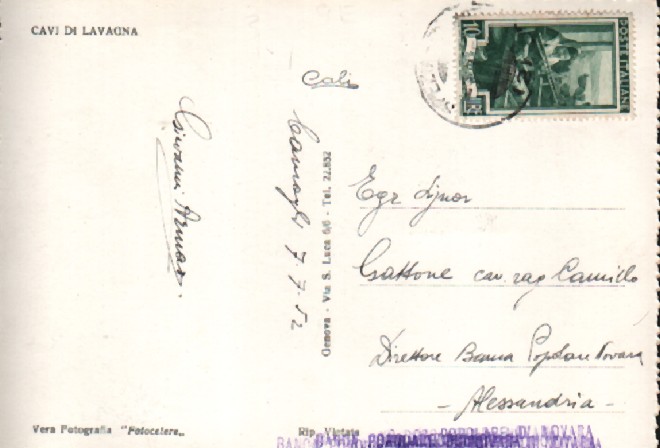 CAVI DI LAVAGNA
10
LIRE
POSTE ITALIANE
Giovanni
7-7-52
Genova - Via S. Luca 6/6 - Tel. 22.832
Egr Signor
Gattone cav. rag Camillo
Direttore Banca Popolare Novara
- Alessandria -
Vera Fotografia "Fotocelere„
Rip. Vietata
BANCA POPOLARE DI NOVARA